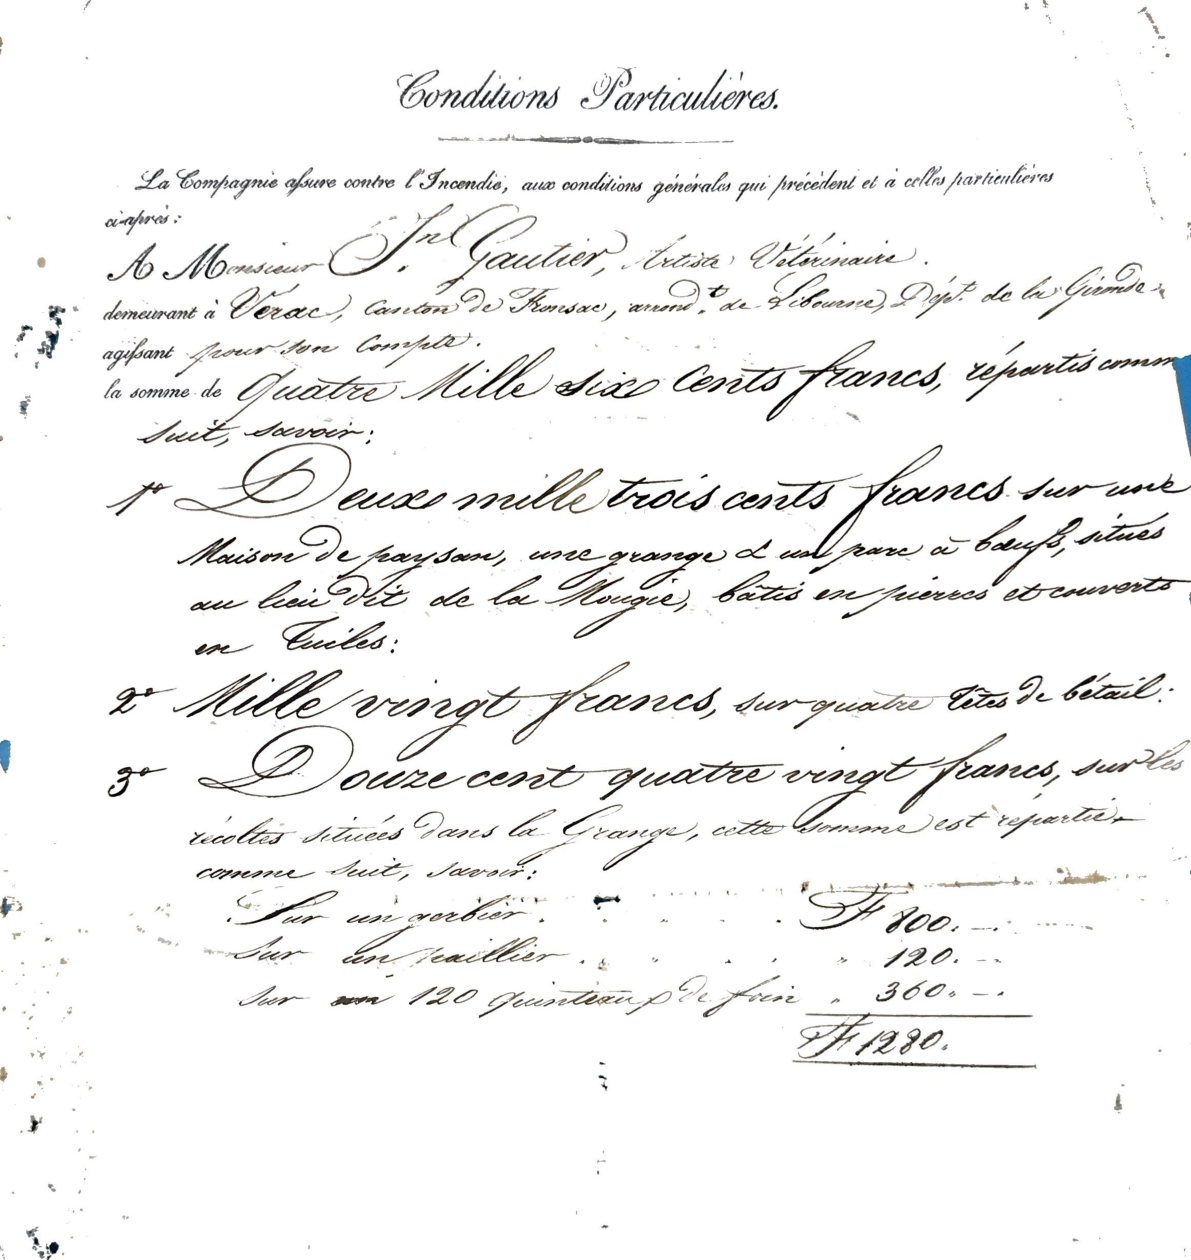 Conditions Particulières.
La Compagnie assure contre l'Incendie, aux conditions générales qui précèdent et à celles particulières
ci-après:
A Monsieur Jn. Gautier, Artiste Vétérinaire.
demeurant à Vérac, Canton de Fronsac, arrondt. de Libourne, Dépt. de la Gironde
agissant pour son Compte.
la somme de Quatre Mille six Cents francs, répartis comm
suit, savoir:
1º Deux mille trois cents francs sur une
Maison de paysan, une grange & un parc à bœufs, situés
au lieu dit de la Mougie, bâtis en pierres et couverts
en Tuiles:
2º Mille vingt francs, sur quatre têtes de bétail:
3º Douze cent quatre vingt francs, sur les
récoltes situées dans la Grange, cette somme est répartie
comme suit, savoir:
Sur un gerbier . " " . . F 800. -.
Sur un paillier . . " . . " 120. -.
Sur 120 quinteaux de foin " 360. -.
F 1280.